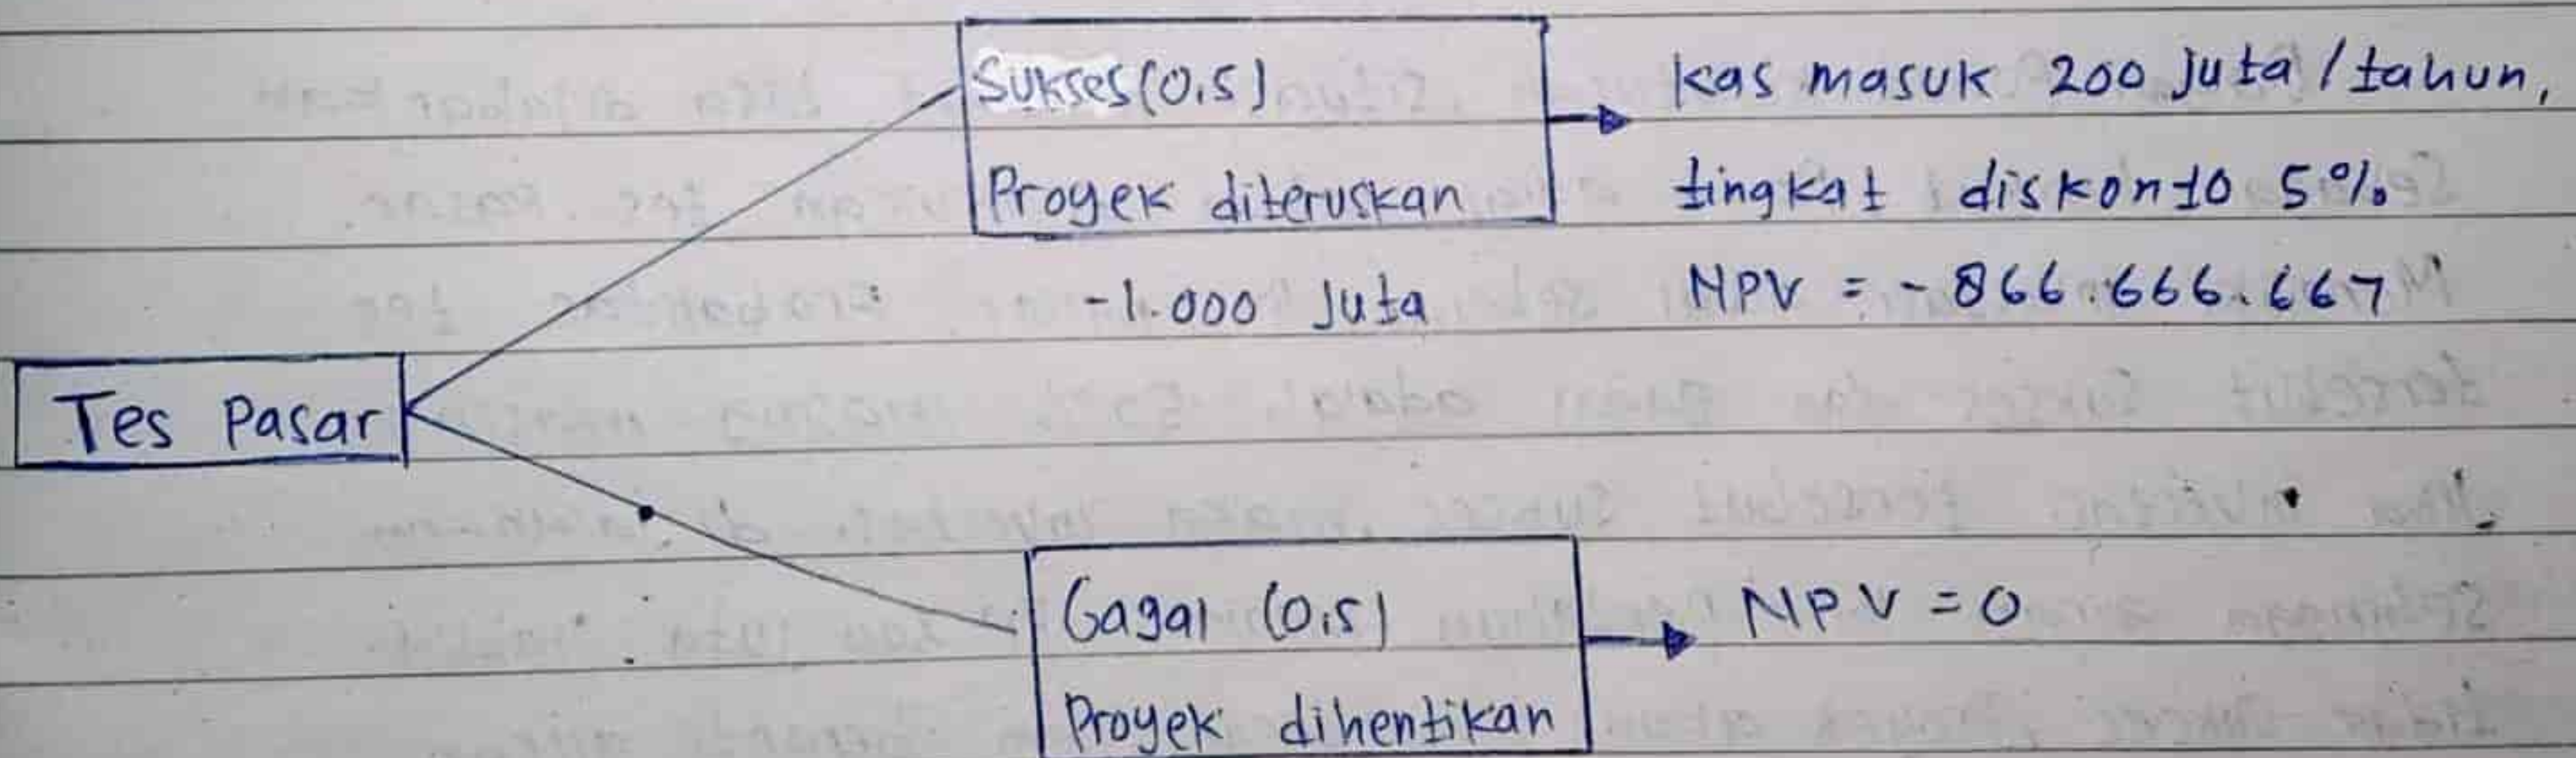 Sukses (0,5)
Proyek diteruskan
-1.000 Juta
kas masuk 200 Juta / tahun,
tingkat diskonto 5%
NPV = - 866.666.667
Tes Pasar
Gagal (0,5)
Proyek dihentikan
NPV = 0